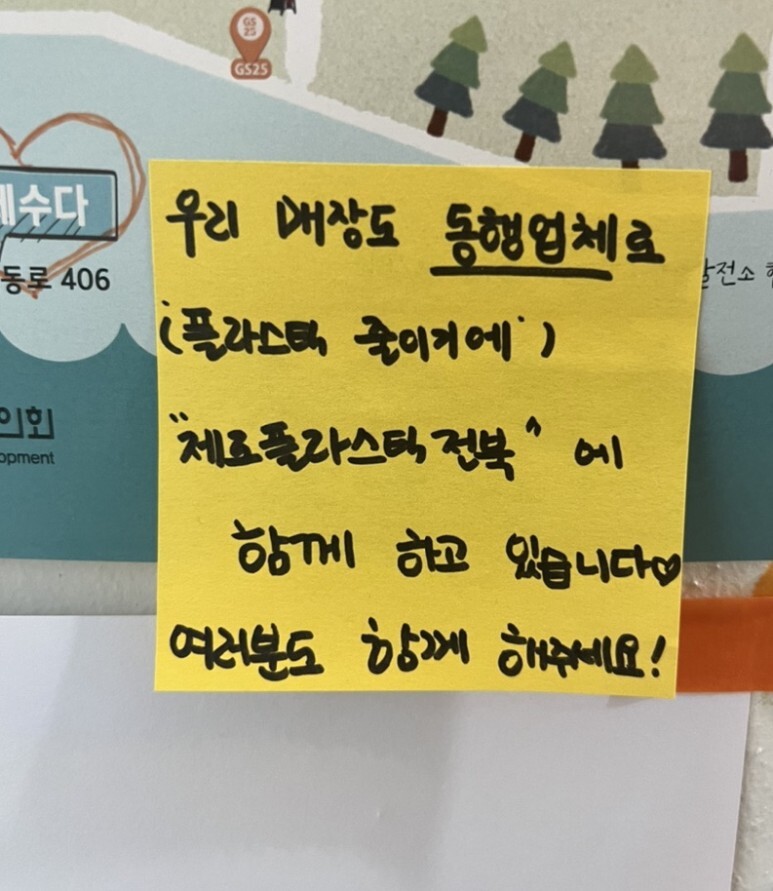 GS
25
GS25
수다
동로 406
의회
opment
전소
우리 매장도 동행업체로
('플라스틱 줄이기에')
"제로플라스틱 전북" 에
함께 하고 있습니다♡
여러분도 함께 해주세요!